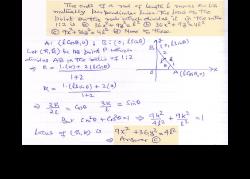 The ends of a rod of length l moves on two
mutually perpendicular lines. The locus of the
point on the rod which divides it in the ratio
1:2 is
A: (l cosθ, 0) B: (0, l sinθ)
Let (h, k) be the point P which
divides AB in the ratio of 1:2
⇒ h = 1·(0) + 2(l cosθ) / 1+2
k = 1·(l sinθ) + 2(0) / 1+2
⇒ 3h/2l = cosθ 3k/l = sinθ
But cos²θ + sin²θ = 1 ⇒ 9h²/4l² + 9k²/l² = 1
locus of (h, k) is 9x² + 36y² = 4l²
⇒ Answer